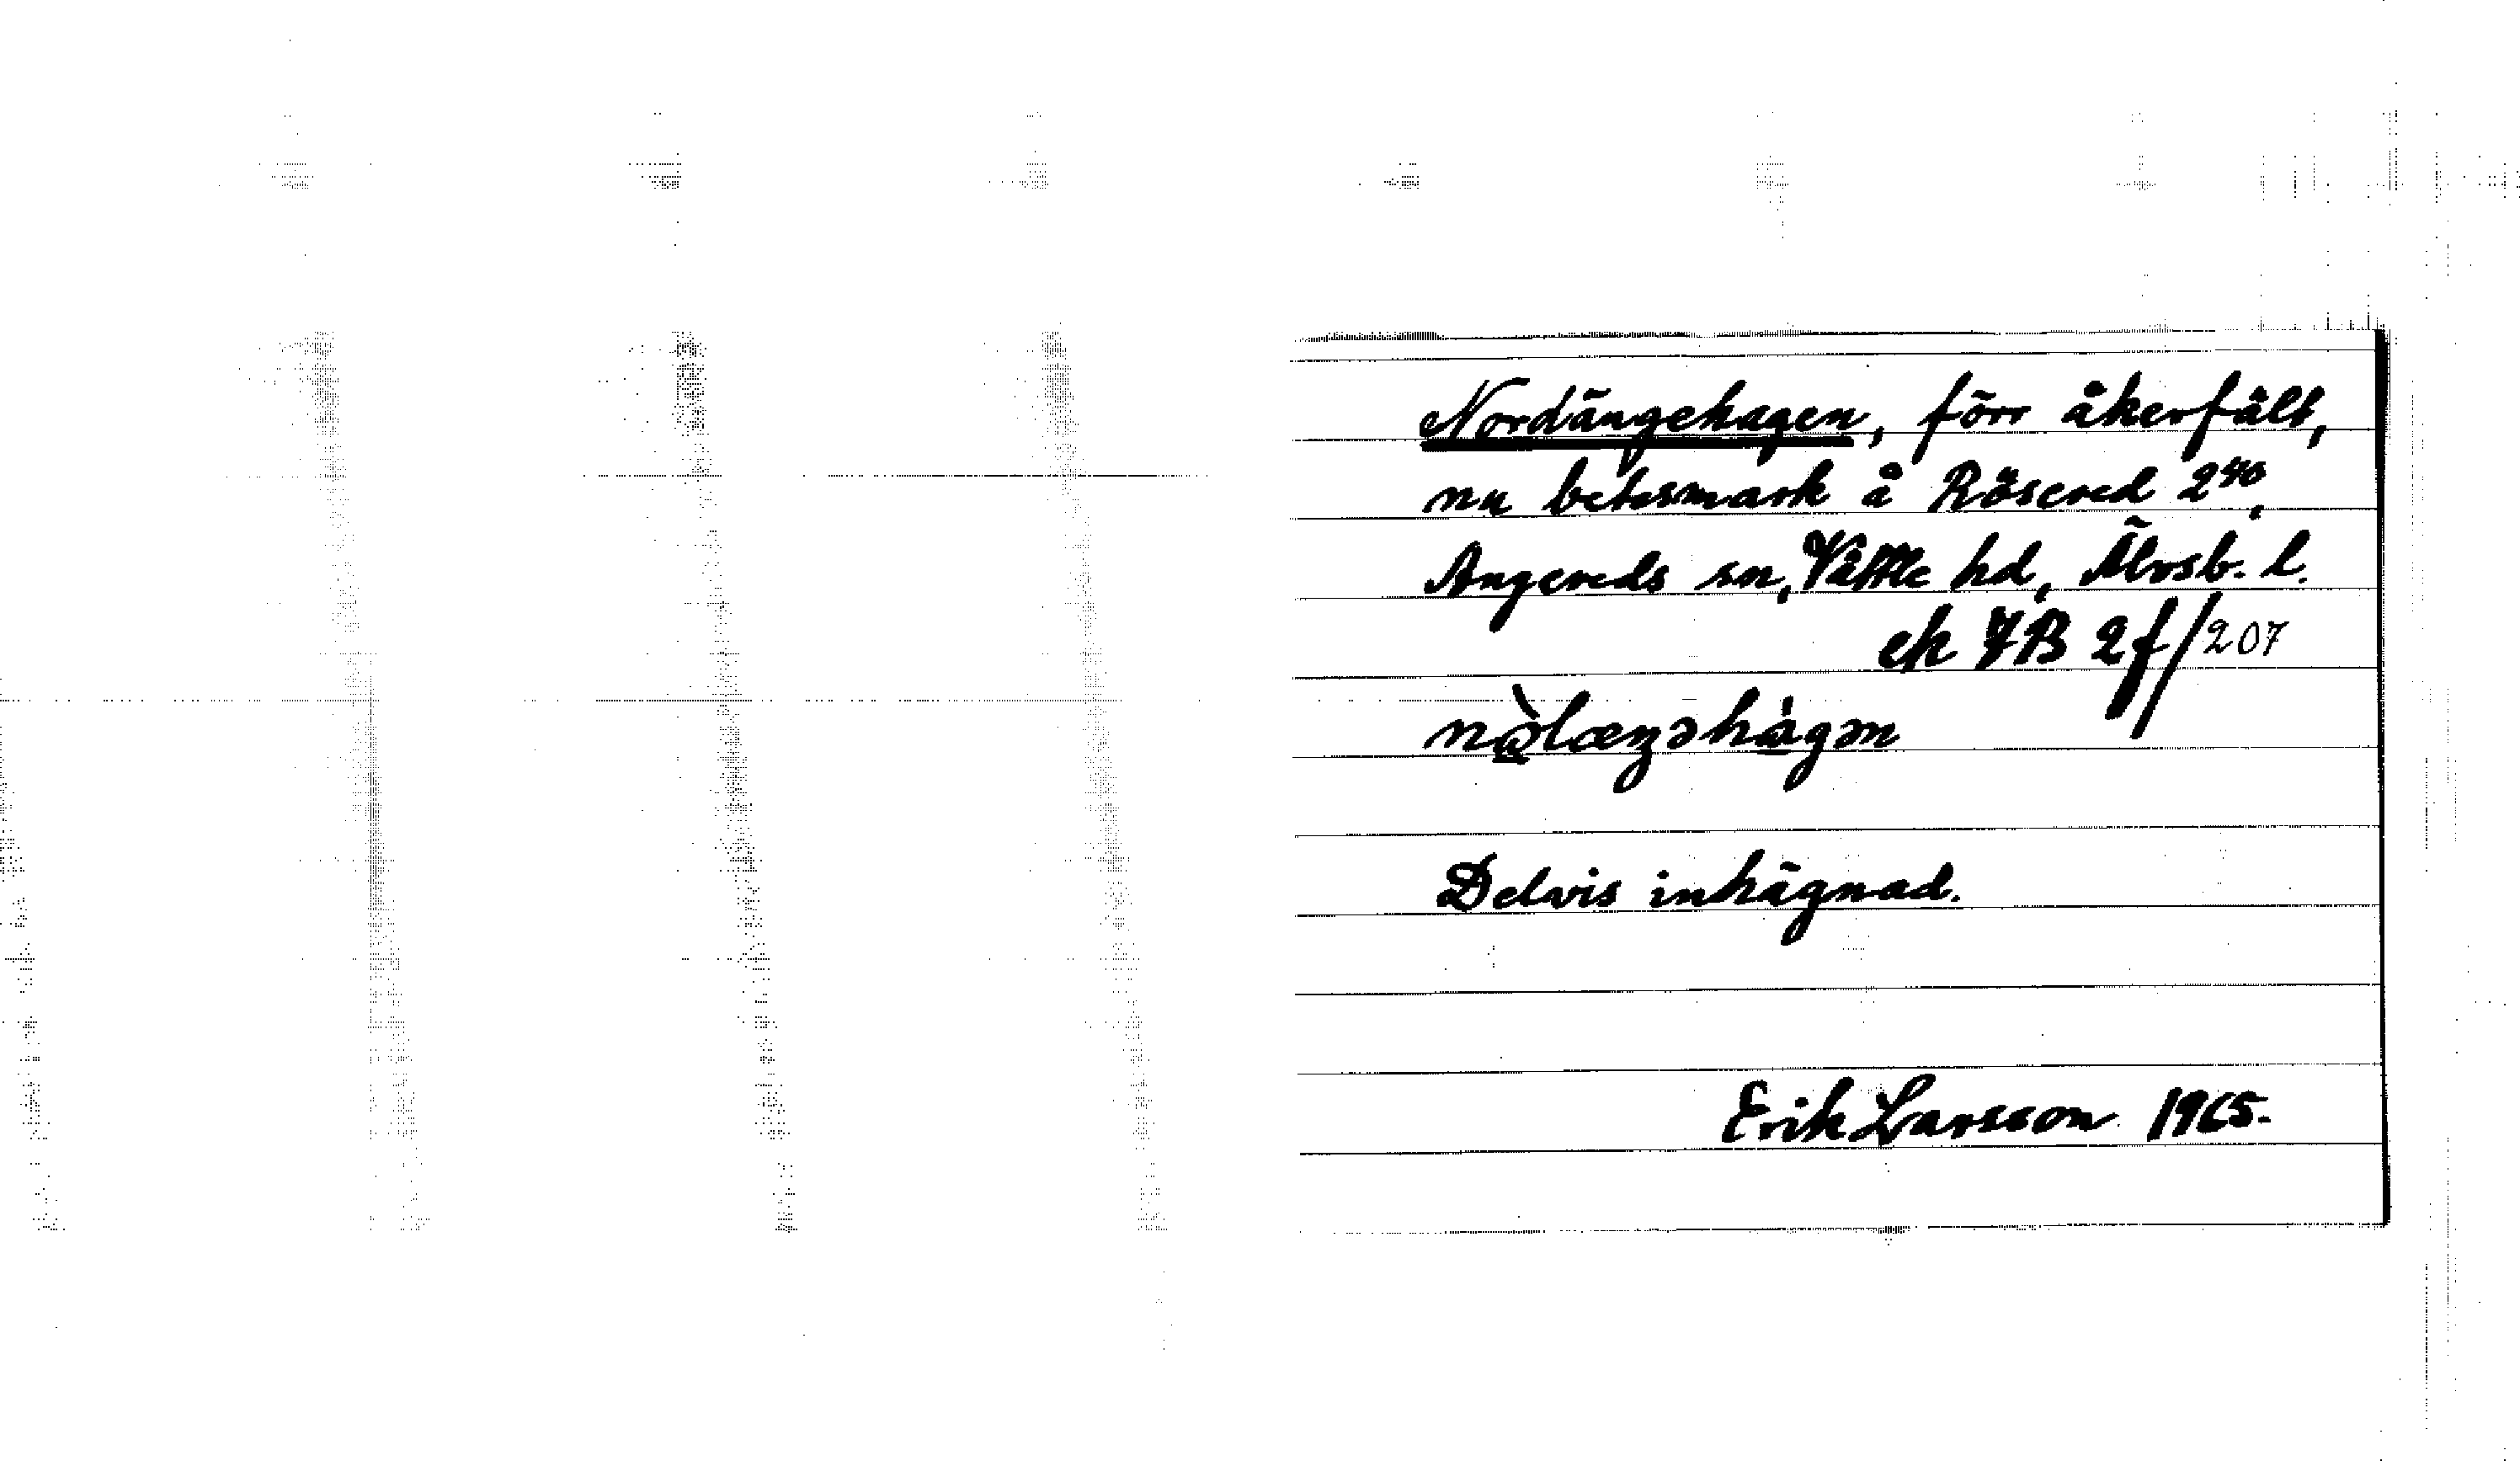 Nordängehagen, förr åkerfält,
nu betesmark å Rösered 2⁴⁰,
Angereds sn, Vättle hd, Älvsb. l.
ek JB 2f/207
Delvis inhägnad.
Erik Larsson 1965.